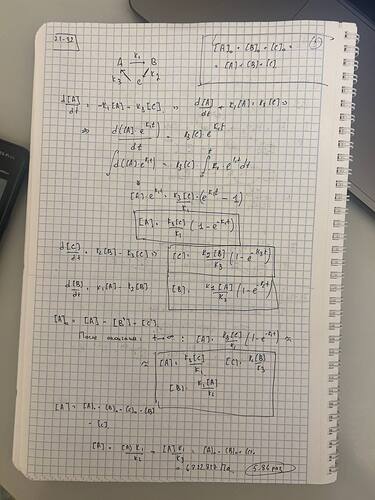 21-32
A k₁→ B
k₃ C k₂
[A]₀ + [B]₀ + [C]₀ =
= [A] + [B] + [C]
d[A]/dt = -k₁[A] + k₃[C] => d[A]/dt + k₁[A] = k₃[C] =>
=> d([A]·e^{k₁t})/dt = k₃[C]·e^{k₁t}
∫ d([A]·e^{k₁t}) = k₃[C] · ∫ e^{k₁t} dt
[A]·e^{k₁t} = k₃[C]/k₁ · (e^{k₁t} - 1)
[A] = k₃[C]/k₁ (1 - e^{-k₁t})
d[C]/dt = k₂[B] - k₃[C] => [C] = k₂[B]/k₃ (1 - e^{-k₃t})
d[B]/dt = k₁[A] - k₂[B] [B] = k₁[A]/k₂ (1 - e^{-k₂t})
t → ∞ : [A] = k₃[C]/k₁ (1 - e^{-k₁t}) ≈
≈ [A] = k₃[C]/k₁ [C] = k₂[B]/k₃
[B] = k₁[A]/k₂
[A] = [A]₀ + [B]₀ + [C]₀ - [B]
- [C]
[A] + [A] k₁/k₂ + [A] k₁/k₃ = [A]₀ + [B]₀ +